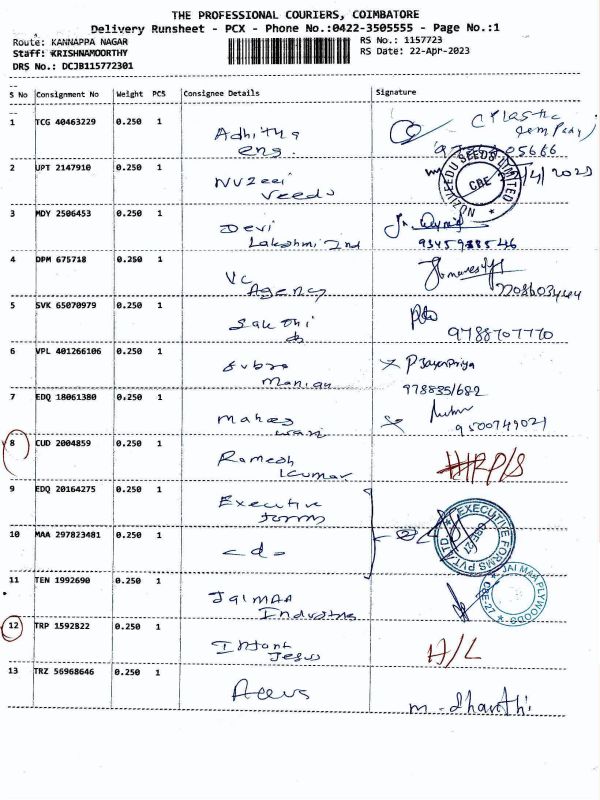 THE PROFESSIONAL COURIERS, COIMBATORE
Delivery Runsheet - PCX - Phone No.:0422-3505555 - Page No.:1
Route: KANNAPPA NAGAR RS No.: 1157723
Staff: KRISHNAMOORTHY RS Date: 22-Apr-2023
DRS No.: DCJB115772301
S No Consignment No Weight PCS Consignee Details Signature
1 TCG 40463229 0.250 1 Adhithya
eng.
2 UPT 2147910 0.250 1 NUZeei
veedu
NUZIVEEDU SEEDS LIMITED
CBE
3 MDY 2506453 0.250 1 Devi
Lakshmi Ind
4 DPM 675718 0.250 1 VC
Agency
5 SVK 65070979 0.250 1 Sakthi
9788707770
6 VPL 401266106 0.250 1 Subra
Manian
P Jayapriya
9788351682
7 EDQ 18061380 0.250 1 Mahes
wari
9500749021
8 CUD 2004859 0.250 1 Ramesh
kumar
RP/S
9 EDQ 20164275 0.250 1 Executive
forms
EXECUTIVE FORMS PVT LTD
10 MAA 297823481 0.250 1 - do -
11 TEN 1992690 0.250 1 Jaimaa
Industries
JAI MAA PLYWOODS
CBE-27
12 TRP 1592822 0.250 1 Infant
Jesus
A/L
13 TRZ 56968646 0.250 1
m. dharthi